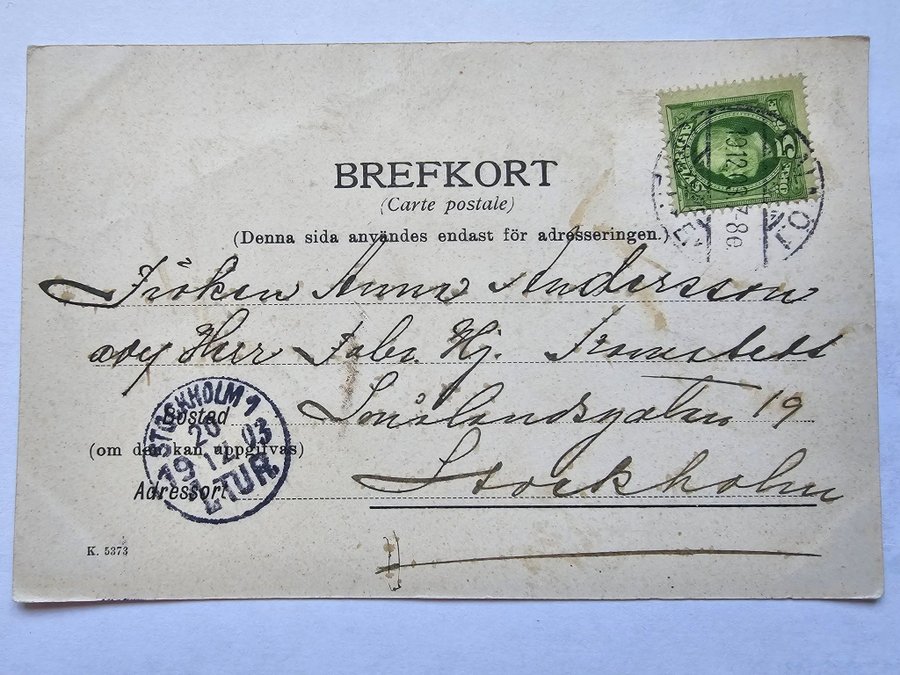 BREFKORT
(Carte postale)
(Denna sida användes endast för adresseringen.)
SVERIGE
5
Fröken Anna Andersson
Herr Fabr. Hj. Tromstedt
Smålandsgatan 19
Bostad
(om den kan uppgifvas)
Stockholm
Adressort
STOCKHOLM 1
20
19 12 03
1 TUR
K. 5373